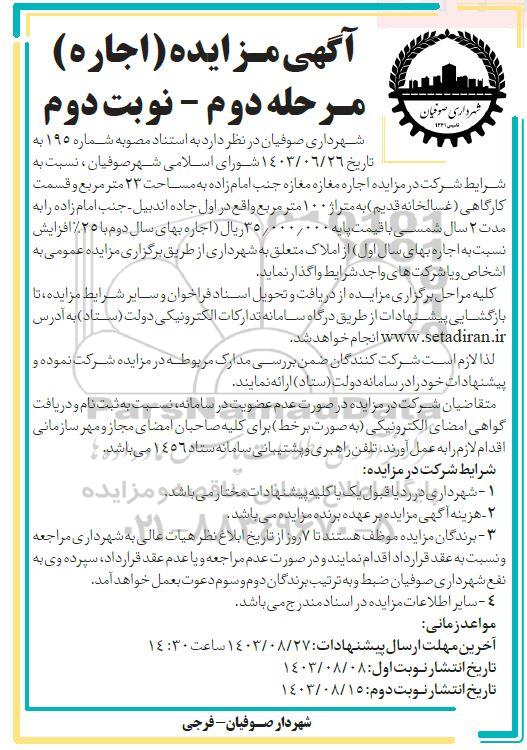 آگهی مـزایده (اجاره)
مـرحله دوم - نوبت دوم
شهرداری صوفیان
تاسیس ۱۳۴۱
شـهرداری صوفیان در نظر دارد به استناد مصوبه شـماره ۱۹۵ به
تاریخ ۱۴۰۳/۰۶/۲۶ شورای اسلامی شهرصوفیان ، نسبت به
شرایط شرکت در مزایده اجاره مغازه مغازه جنب امام زاده به مساحت ۲۳ متر مربع و قسمت
کارگاهی (غسالخانه قدیم) به متراژ ۱۰۰ متر مربع واقع در اول جاده اندبیل-جنب امام زاده را به
مدت ۲ سال شمسی با قیمت پایه ۳۵/۰۰۰/۰۰۰ریال (اجاره بهای سال دوم با ۲۵٪ افزایش
نسبت به اجاره بهای سال اول) از املاک متعلق به شهرداری از طریق برگزاری مزایده عمومی به
اشخاص ویا شرکت های واجد شرایط واگذار نماید.
کلیه مراحل برگزاری مزایـده از دریافت و تحویل اسـناد فراخوان و سـایر شرایط مزایده، تا
بازگشـایی پیشنهادات از طریق درگاه سـامانه تدارکات الکترونیکی دولت (ستاد) به آدرس
www.setadiran.ir انجام خواهد شد.
لذا لازم اسـت شـرکت کنندگان ضمن بررسـی مدارک مربوطـه در مزایده شـرکت نموده و
پیشنهادات خود را در سامانه دولت (ستاد) ارائه نمایند.
متقاضیان شرکت در مزایده در صورت عدم عضویت در سامانه، نسبت به ثبت نام و دریافت
گواهی امضای الکترونیکی (به صورت بر خط) برای کلیه صاحبان امضای مجاز و مهر سازمانی
اقدام لازم را به عمل آورند. تلفن راهبری و پشتیبانی سامانه ستاد ۱۴۵۶ می باشد.
شرایط شرکت در مزایده:
۱- شهرداری در رد یا قبول یک یا کلیه پیشنهادات مختار می باشد.
۲-هزینه آگهی مزایده بر عهده برنده مزایده می باشد.
۳- برندگان مزایده موظف هستند تا ۷ روز از تاریخ ابلاغ نظر هیات عالی به شهرداری مراجعه
و نسبت به عقد قرارداد اقدام نمایند و در صورت عدم مراجعه و یا عدم عقد قرارداد، سپرده وی به
نفع شهرداری صوفیان ضبط و به ترتیب برندگان دوم و سوم دعوت بعمل خواهد آمد.
۴- سایر اطلاعات مزایده در اسناد مندرج می باشد.
مواعد زمانی:
آخرین مهلت ارسال پیشنهادات: ۱۴۰۳/۰۸/۲۷ ساعت ۱۴:۳۰
تاریخ انتشار نوبت اول: ۱۴۰۳/۰۸/۰۸
تاریخ انتشار نوبت دوم: ۱۴۰۳/۰۸/۱۵
شهردار صـوفیان- فرجی